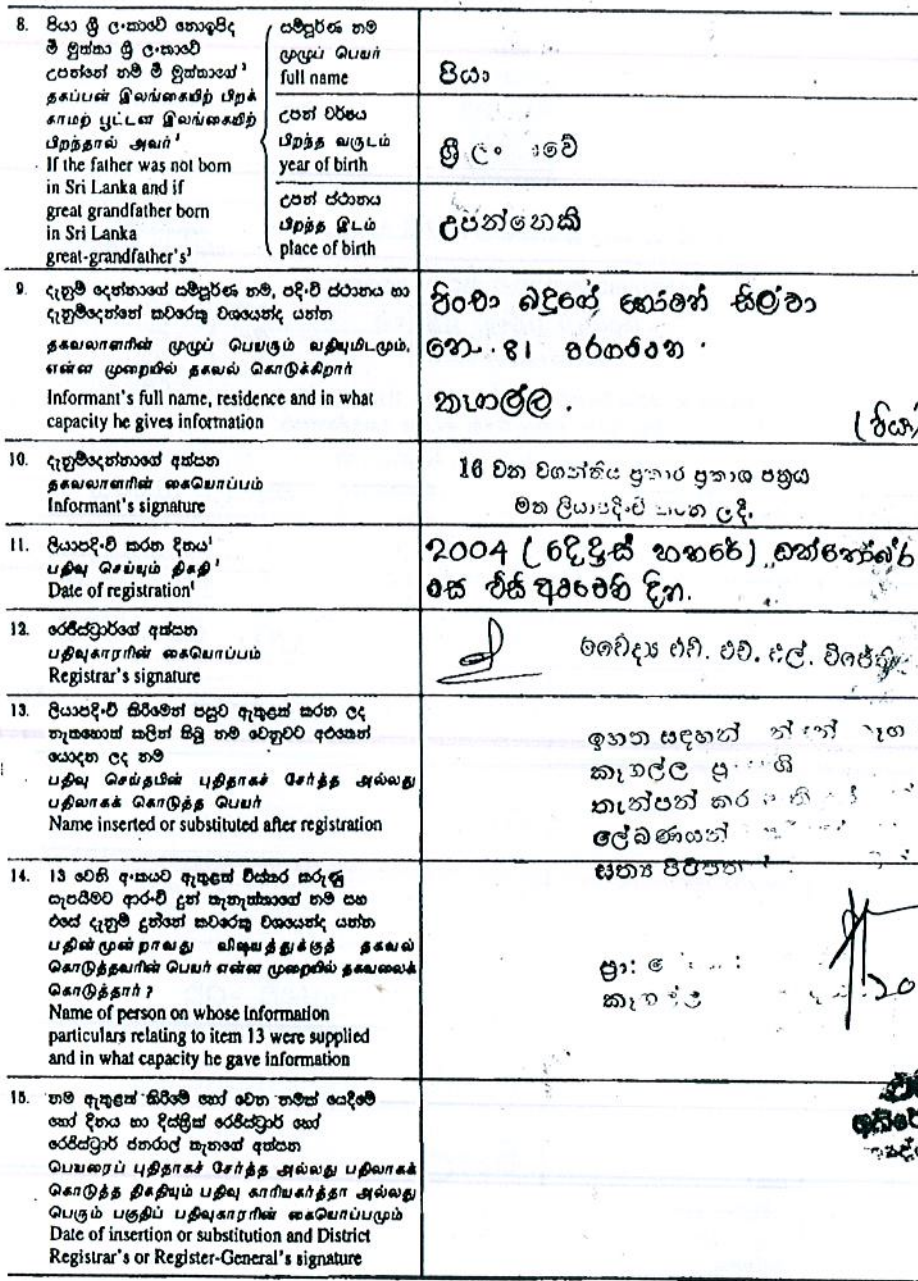 8. පියා ශ්‍රී ලංකාවේ නොඉපිද
මී මුත්තා ශ්‍රී ලංකාවේ
උපන්නේ නම් මී මුත්තාගේ³
தகப்பன் இலங்கையிற் பிறக்
காமற் பூட்டன் இலங்கையிற்
பிறந்தால் அவர்³
If the father was not born
in Sri Lanka and if
great grandfather born
in Sri Lanka
great-grandfather's³
සම්පූර්ණ නම
முழுப் பெயர்
full name
පියා
උපන් වර්ෂය
பிறந்த வருடம்
year of birth
ශ්‍රී ලං වේ
උපන් ස්ථානය
பிறந்த இடம்
place of birth
උපන්නෙකි
9. දැනුම් දෙන්නාගේ සම්පූර්ණ නම, පදිංචි ස්ථානය හා
දැනුම්දෙන්නේ කවරෙකු වශයෙන්ද යන්න
தகவலாளரின் முழுப் பெயரும் வதியுமிடமும்,
என்ன முறையில் தகவல் கொடுக்கிறார்
Informant's full name, residence and in what
capacity he gives information
බදුගේ සිල්වා
නො. 81
කෑගල්ල.
(පියා)
10. දැනුම්දෙන්නාගේ අත්සන
தகவலாளரின் கையொப்பம்
Informant's signature
16 වන වගන්තිය ප්‍රකාර ප්‍රකාශ පත්‍රය
මත ලියාපදිංචි ලදී.
11. ලියාපදිංචි කරන දිනය¹
பதிவு செய்யும் திகதி¹
Date of registration¹
2004 (දෙදහස් හතරේ) ඔක්තෝබර්
මස විසි අටවෙනි දින.
12. රෙජිස්ට්‍රාර්ගේ අත්සන
பதிவுகாரரின் கையொப்பம்
Registrar's signature
වෛද්‍ය එච්. එච්. එල්.
13. ලියාපදිංචි කිරීමෙන් පසුව ඇතුළත් කරන ලද
නැතහොත් කලින් තිබූ නම වෙනුවට අළුතෙන්
යොදන ලද නම
பதிவு செய்தபின் புதிதாகச் சேர்த்த அல்லது
பதிலாகக் கொடுத்த பெயர்
Name inserted or substituted after registration
ඉහත සඳහන්
කෑගල්ල
තැන්පත් කර
ලේඛණයන්
සත්‍ය පිටපත
14. 13 වෙනි අංකයට ඇතුළත් විස්තර කරුණු
සැපයීමට ආරංචි දුන් තැනැත්තාගේ නම සහ
එසේ දැනුම් දුන්නේ කවරෙකු වශයෙන්ද යන්න
பதின்மூன்றாவது விஷயத்துக்குத் தகவல்
கொடுத்தவரின் பெயர் என்ன முறையில் தகவலைக்
கொடுத்தார் ?
Name of person on whose Information
particulars relating to item 13 were supplied
and in what capacity he gave information
ප්‍රා:
20
15. නම ඇතුළත් කිරීමේ හෝ වෙන නමක් යෙදීමේ
හෝ දිනය හා දිස්ත්‍රික් රෙජිස්ට්‍රාර් හෝ
රෙජිස්ට්‍රාර් ජනරාල් තැනගේ අත්සන
பெயரைப் புதிதாகச் சேர்த்த அல்லது பதிலாகக்
கொடுத்த திகதியும் பதிவு காரியகர்த்தா அல்லது
பெரும் பகுதிப் பதிவுகாரரின் கையொப்பமும்
Date of insertion or substitution and District
Registrar's or Register-General's signature